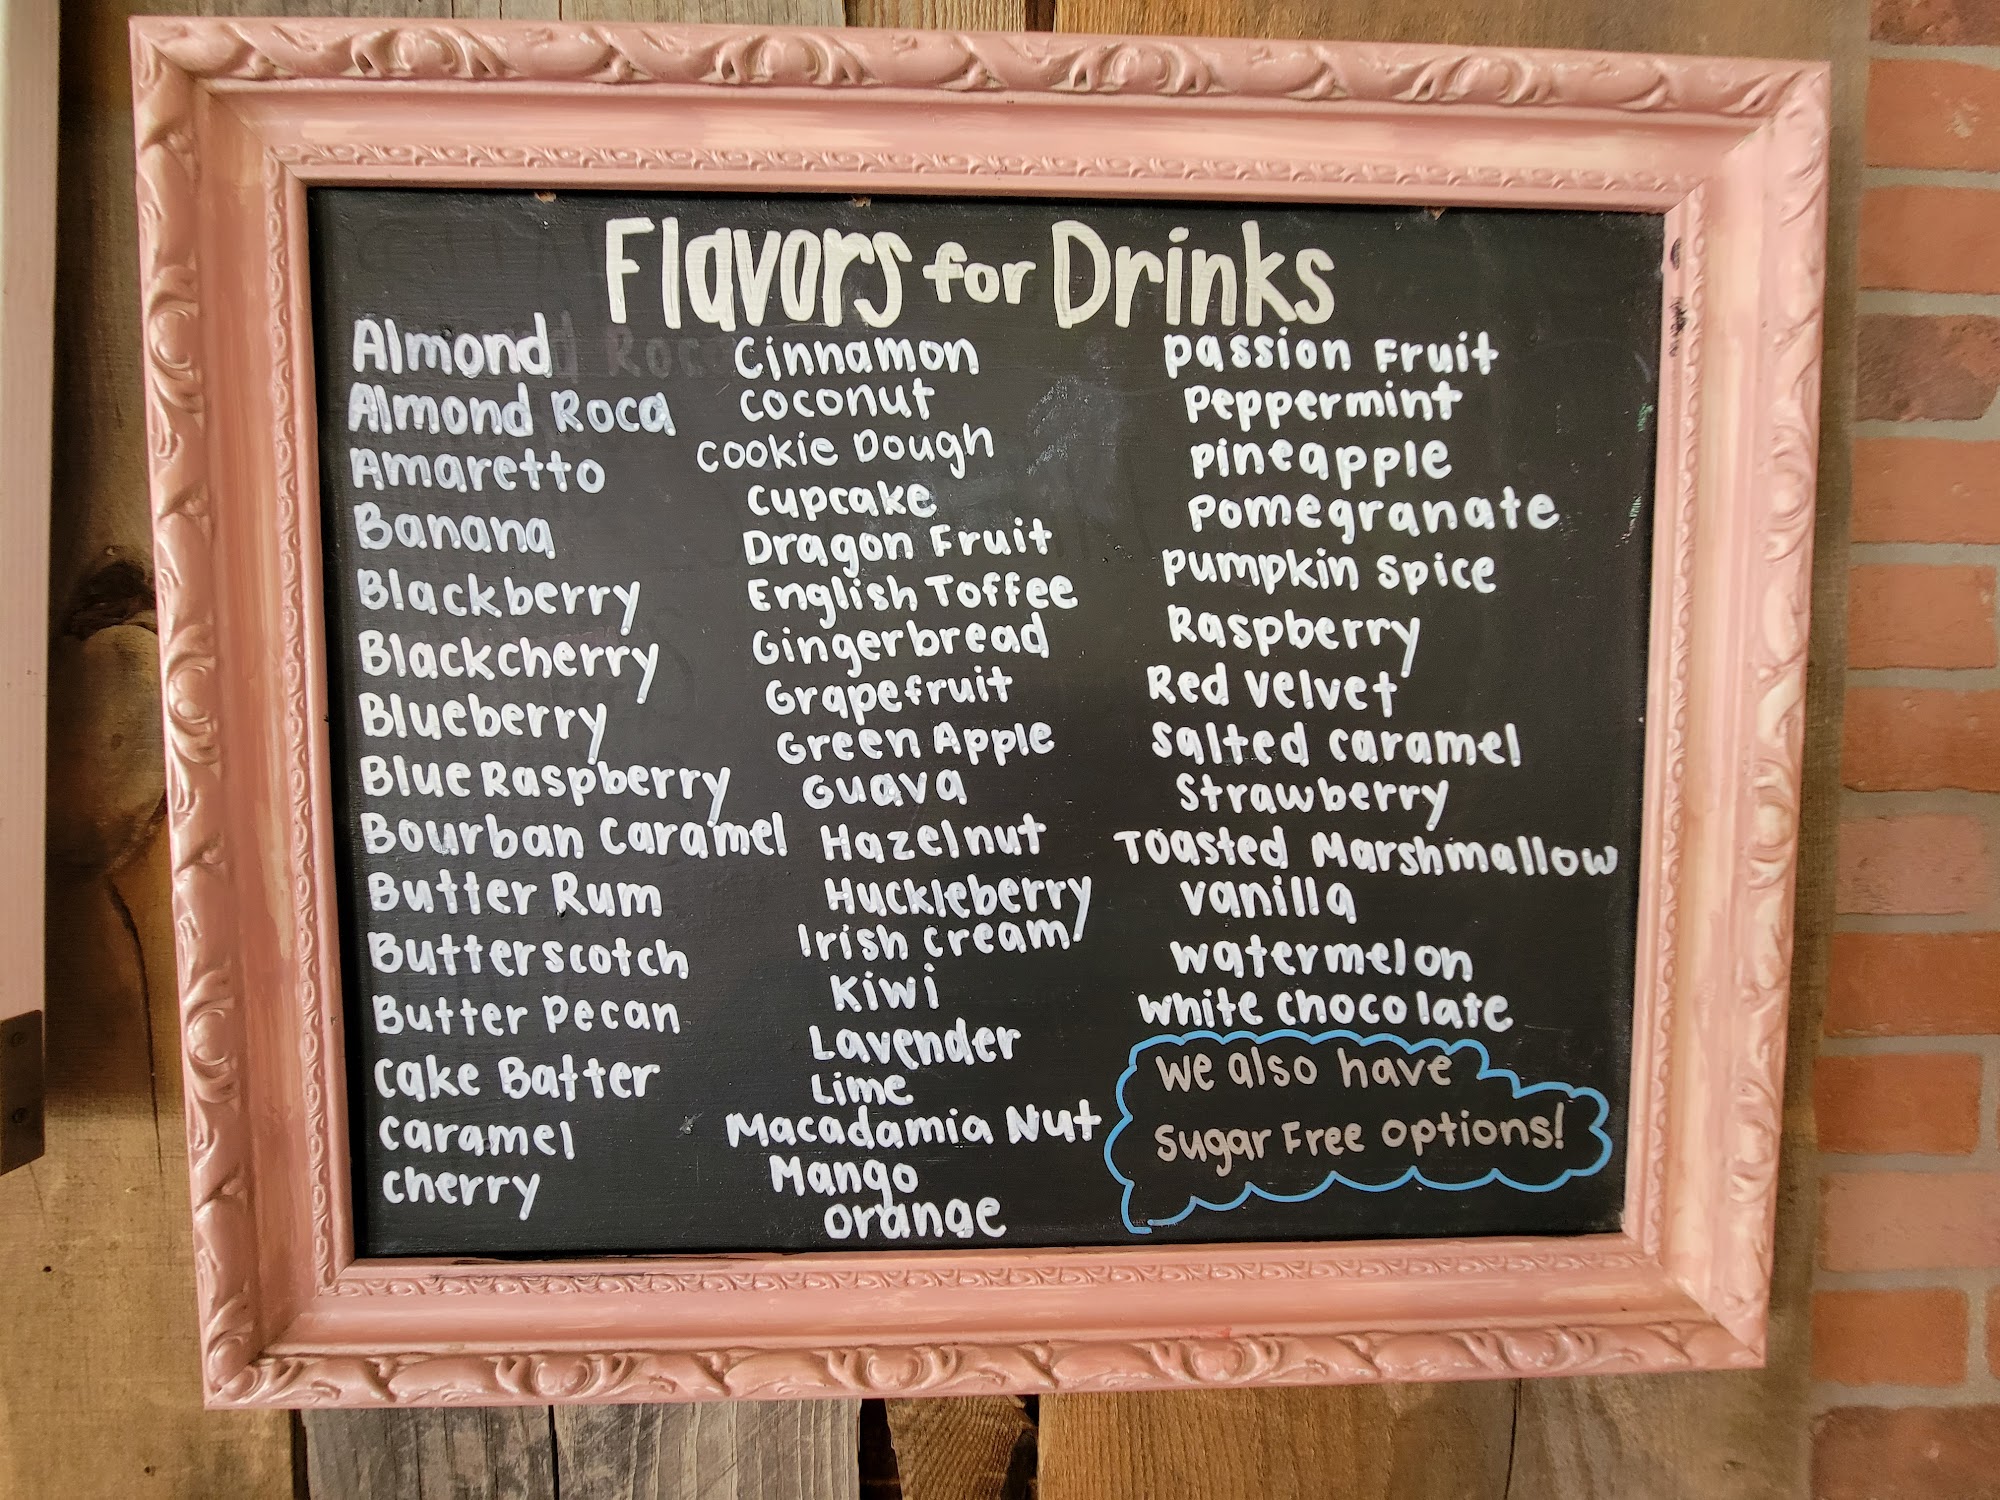 Flavors for Drinks
Almond
Almond Roca
Amaretto
Banana
Blackberry
Blackcherry
Blueberry
Blue Raspberry
Bourban Caramel
Butter Rum
Butterscotch
Butter Pecan
Cake Batter
Caramel
Cherry
Cinnamon
Coconut
Cookie Dough
Cupcake
Dragon Fruit
English Toffee
Gingerbread
Grapefruit
Green Apple
Guava
Hazelnut
Huckleberry
Irish Cream
Kiwi
Lavender
Lime
Macadamia Nut
Mango
Orange
Passion Fruit
Peppermint
Pineapple
Pomegranate
Pumpkin Spice
Raspberry
Red Velvet
Salted Caramel
Strawberry
Toasted Marshmallow
Vanilla
Watermelon
White Chocolate
We also have
Sugar Free options!